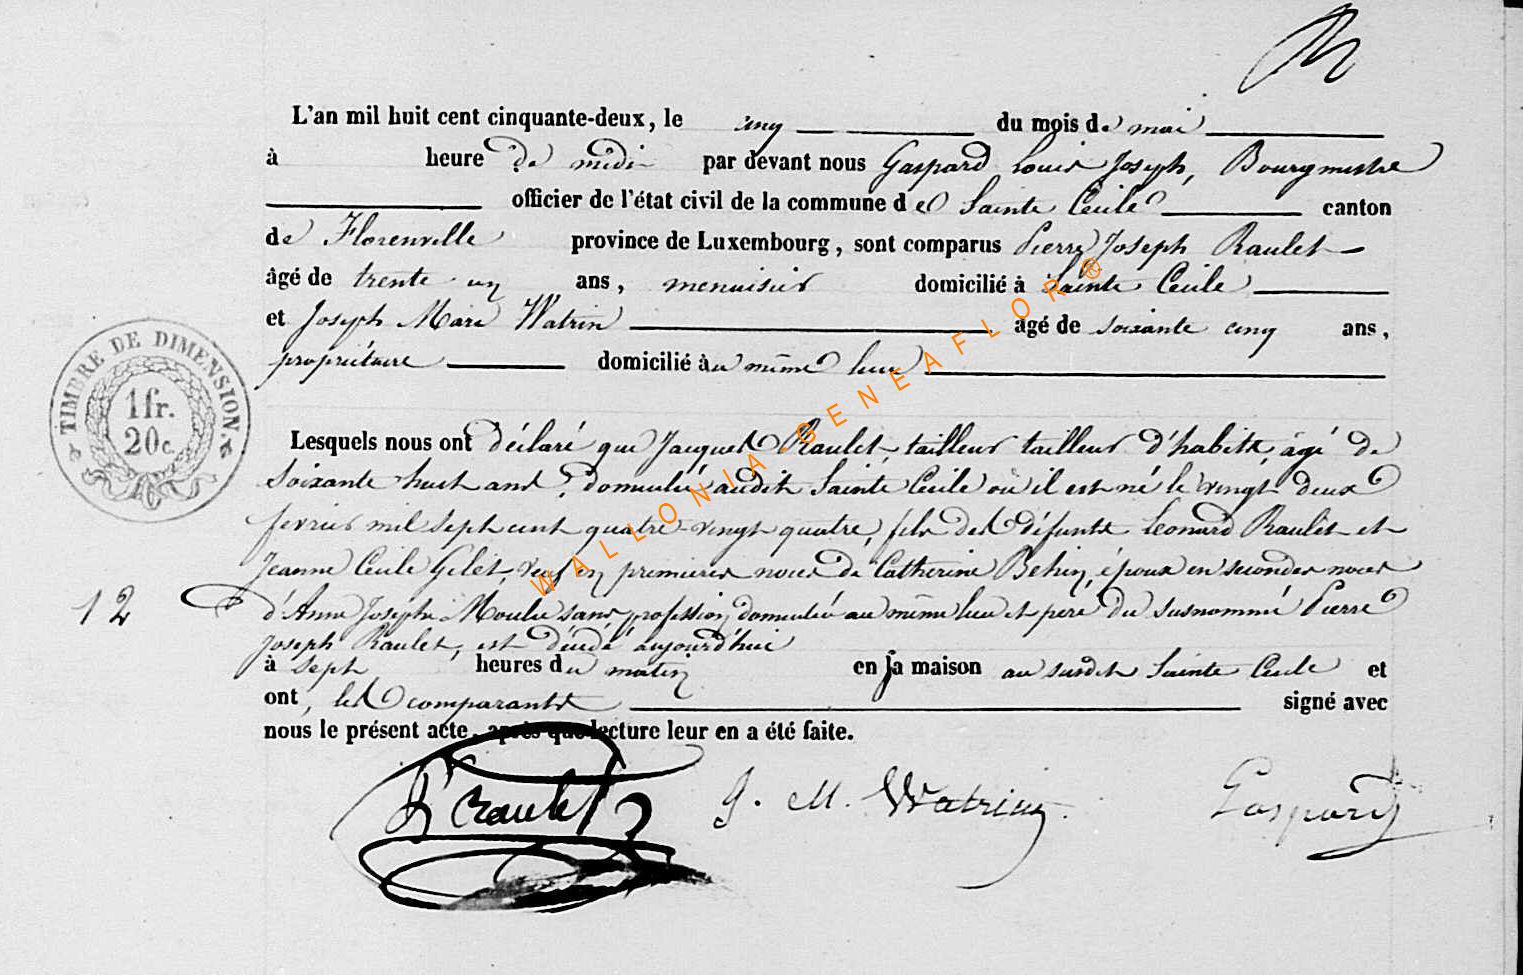 L'an mil huit cent cinquante-deux, le cinq du mois de mai
à heure de midi par devant nous Gaspard Louis Joseph, Bourgmestre
officier de l'état civil de la commune de Sainte Cecile canton
de Florenville province de Luxembourg, sont comparus Pierre Joseph Raulet
âgé de trente un ans, menuisier domicilié à Sainte Cecile
et Joseph Marie Watrin âgé de soixante cinq ans,
propriétaire domicilié au même lieu
TIMBRE DE DIMENSION.
1 fr.
20 c.
Lesquels nous ont déclaré que Jacques Raulet, tailleur tailleur d'habits, âgé de
soixante huit ans, domicilié audit Sainte Cecile où il est né le vingt deux
fevrier mil sept cent quatre-vingt quatre, fils des défunts Leonard Raulet et
Jeanne Cecile Gilet, veuf en premieres noces de Catherine Behin, époux en secondes noces
12
d'Anne Josephe Moulu sans profession domiciliée au même lieu et pere du susnommé Pierre
Joseph Raulet, est décédé aujourd'hui
à sept heures du matin en sa maison au susdit Sainte Cecile et
ont, les comparants signé avec
nous le présent acte, après que lecture leur en a été faite.
PJ Raulet J. M. Watrin Gaspard
WALLONIA GENEAFLOR®